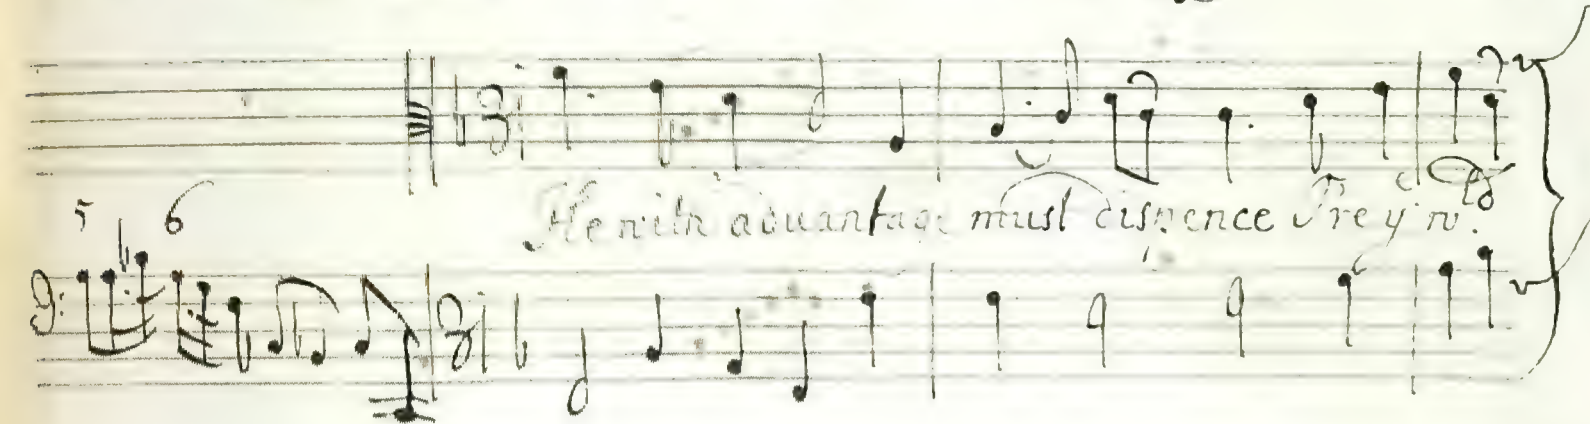 He with aduantage must dispence Tre yw.
5 6